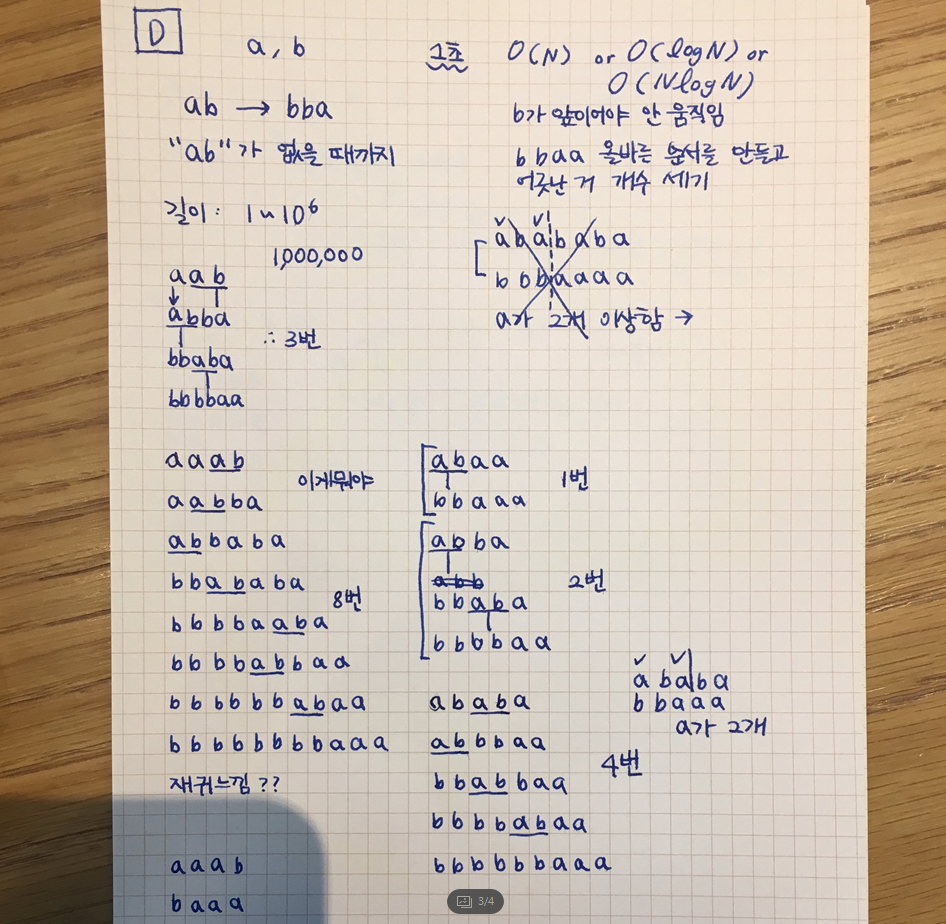 D
a, b
ab → bba
"ab"가 없을 때까지
길이: 1 ~ 10⁶
1,000,000
aab
abba
bbaba
bbbbaa
∴ 3번
1초 O(N) or O(logN) or
O(NlogN)
b가 앞이어야 안 움직임
bbaa 올바른 순서를 만들고
어긋난 거 개수 세기
aba|baba
bbbaaaa
a가 2개 이상함 →
aaab
이게뭐야
aabba
abbaba
bbababa
8번
bbbbaaba
bbbbabbaa
bbbbbbabaa
bbbbbbbbaaa
재귀느낌 ??
aaab
baaa
abaa
1번
bbaaa
abba
abb
2번
bbaba
bbbbaa
ababa
abbbaa
4번
bbabbaa
bbbbabaa
bbbbbbaaa
aba|ba
bbaaa
a가 2개
3/4